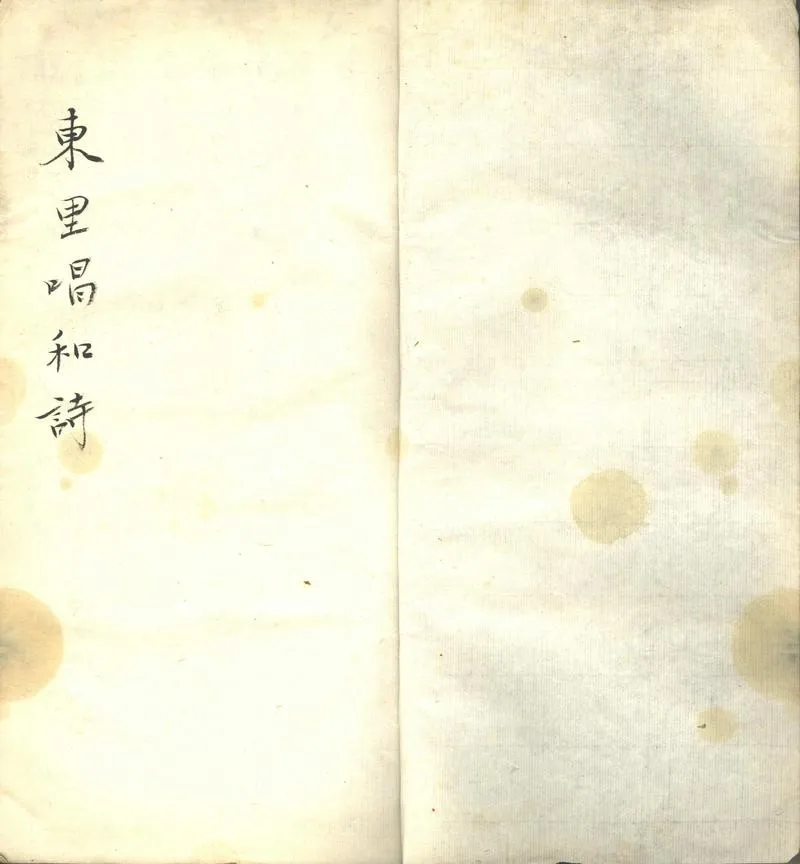 東里唱和詩